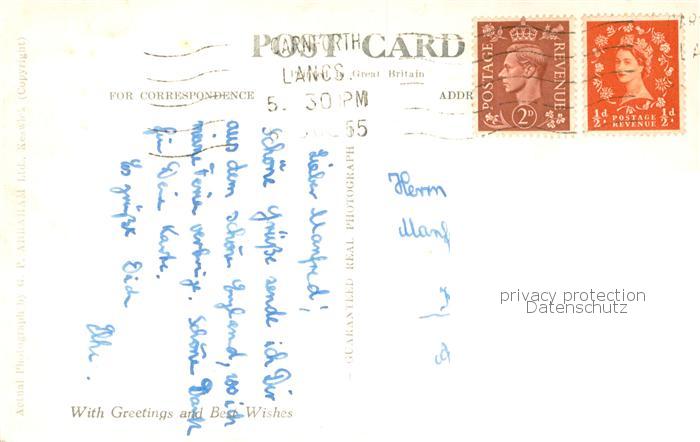 POST CARD
CARNFORTH
LANCS.
5. 30 PM
55
Great Britain
FOR CORRESPONDENCE
ADDR
POSTAGE REVENUE
2D
½d. POSTAGE REVENUE ½d.
Lieber Manfred!
Schöne Grüße sende ich Dir
aus dem schönen England, wo ich
meine Ferien verbringe. Schönen Dank
für Deine Karte.
Es grüßt Dich
Elke.
Herrn
Manf
GUARANTEED REAL PHOTOGRAPH
Actual Photograph by G. P. ABRAHAM Ltd., Keswick (Copyright)
With Greetings and Best Wishes
privacy protection
Datenschutz